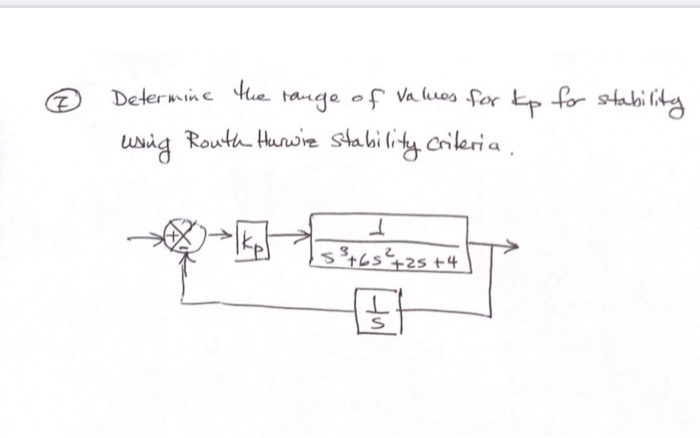 7 Determine the range of values for kp for stability
using Routh Hurwiz stability criteria.
+ -
kp
1
s³+6s²+2s+4
1
s